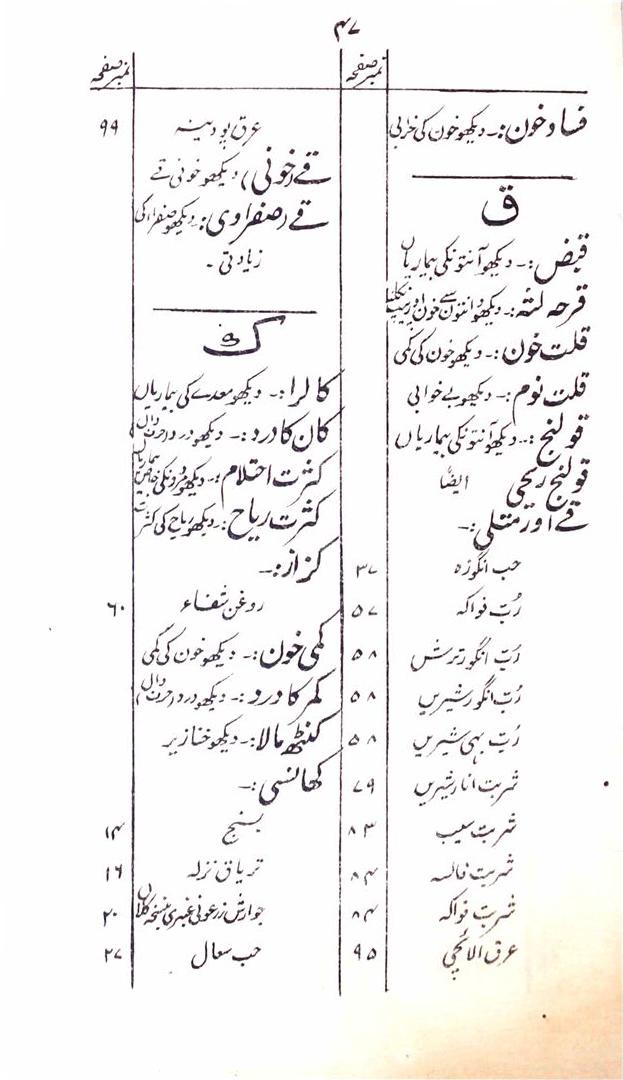 ۴۷
نمبر صفحہ
فساد خون:۔ دیکھو خون کی خرابی
ق
قبض:۔ دیکھو آنتونکی بیماریاں
قرحہ لثہ:۔ دیکھو دانتوں سے خون اور پیپ نکلنا
قلت خون:۔ دیکھو خون کی کمی
قلت نوم:۔ دیکھو بے خوابی
قولنج:۔ دیکھو آنتونکی بیماریاں
قولنج ریحی ایضاً
قے اور متلی:۔
حب انگوزہ ۳۷
رُبّ فواکہ ۵۷
رُبّ انگور ترش ۵۸
رُبّ انگور شیریں ۵۸
رُبّ بہی شیریں ۵۸
شربت انار شیریں ۷۹
شربت سیب ۸۳
شربت فالسہ ۸۴
شربت فواکہ ۸۴
عرق الائچی ۹۵
نمبر صفحہ
عرق پودینہ ۹۹
قے (خونی) دیکھو خونی قے
قے (صفراوی): دیکھو صفرا کی
زیادتی ۔
ک
کالرا:۔ دیکھو معدے کی بیماریاں
کان کا درد:۔ دیکھو درد (حرف دال)
کثرت احتلام:۔ دیکھو مردونکی خاص بیماریاں
کثرت ریاح:۔ دیکھو ریاح کی کثرت
کزاز:۔
روغن شفاء ۶۰
کمی خون:۔ دیکھو خون کی کمی
کمر کا درد:۔ دیکھو درد (حرف دال)
کنٹھ مالا:۔ دیکھو خنازیر
کھانسی:۔
بسنج ۱۴
تریاق نزلہ ۱۶
جوارش زرعونی عنبری بنسخہ کلاں ۲۰
حب سعال ۲۷